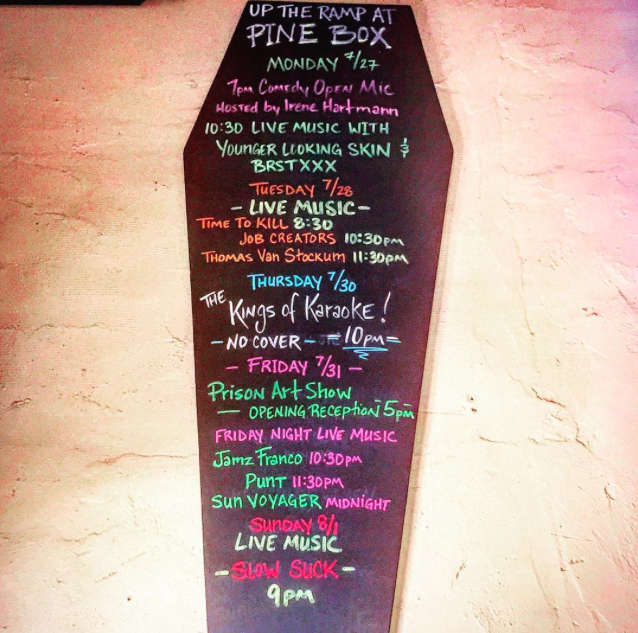 UP THE RAMP AT
PINE BOX
MONDAY 7/27
7pm Comedy Open Mic
Hosted by Irene Hartmann
10:30 LIVE MUSIC WITH
YOUNGER LOOKING SKIN &
BRSTXXX
TUESDAY 7/28
- LIVE MUSIC -
TIME TO KILL 8:30
JOB CREATORS 10:30pm
THOMAS VAN STOCKUM 11:30pm
THURSDAY 7/30
THE Kings of Karaoke!
- NO COVER - =10pm=
- FRIDAY 7/31 -
Prison Art Show
— OPENING RECEPTION - 5pm
FRIDAY NIGHT LIVE MUSIC
Jamz Franco 10:30pm
PUNT 11:30pm
SUN VOYAGER MIDNIGHT
SUNDAY 8/1
LIVE MUSIC
- SLOW SUCK -
9pm